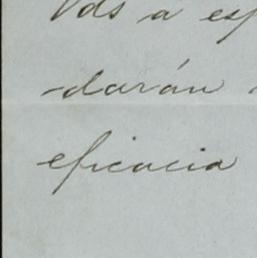 Vds a esp
-darán
eficacia